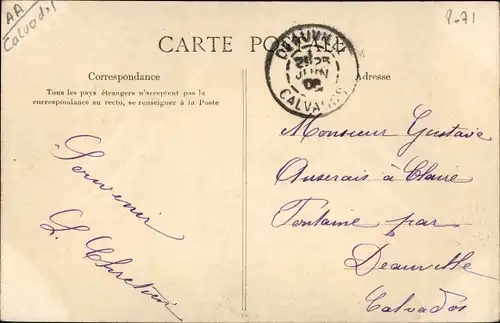 AA
Calvados
2071
CARTE POSTALE
DEAUVILLE
25
JUIN
CALVADOS
Correspondance
Tous les pays étrangers n'acceptent pas la
correspondance au recto, se renseigner à la Poste
Adresse
Souvenir
L. Chretien
Monsieur Gustave
Auserais à Claire
Fontaine par
Deauville
Calvados